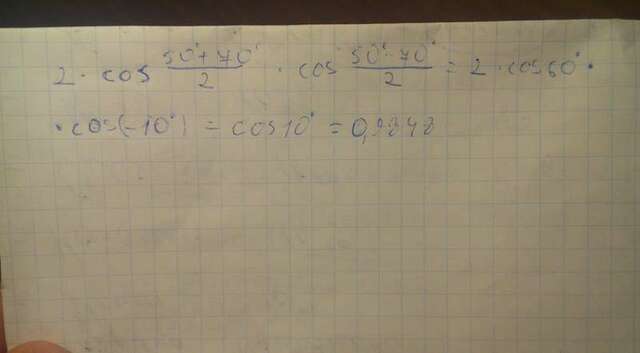 2 · cos (50°+70°)/2 · cos (50°-70°)/2 = 2 · cos 60° ·
· cos(-10°) = cos10° = 0,9848